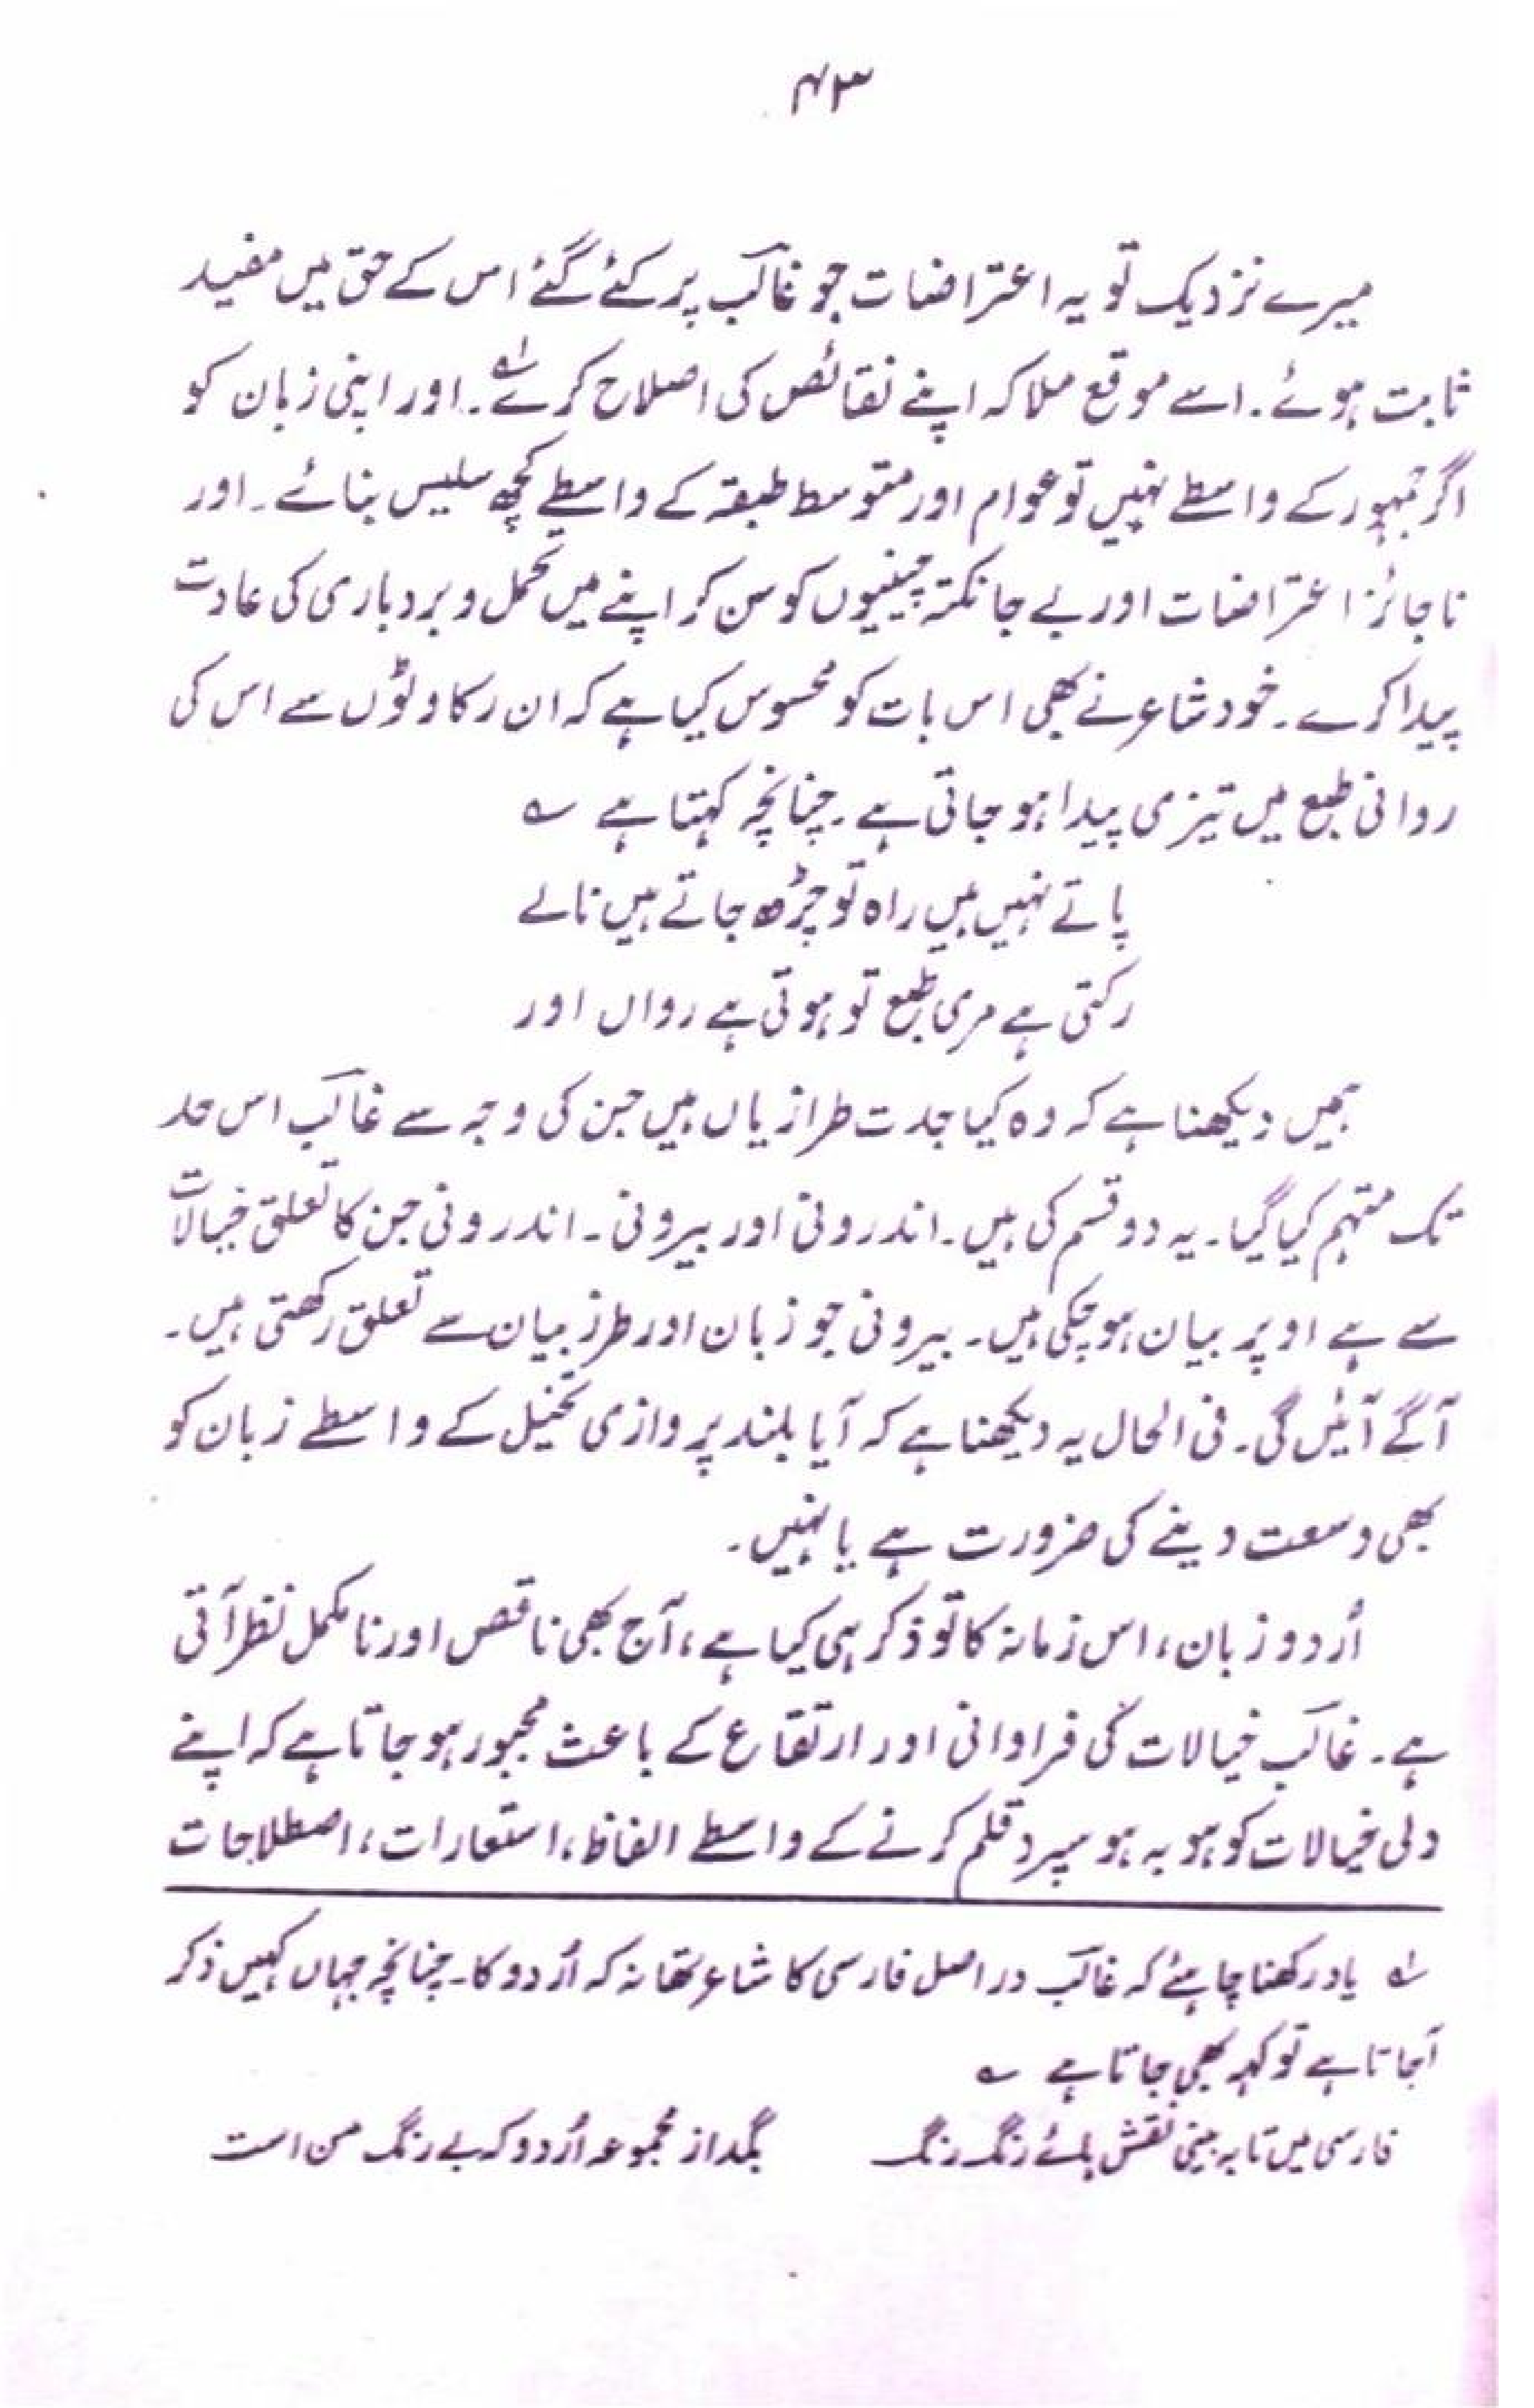 ۴۳
میرے نزدیک تو یہ اعتراضات جو غالب پر کئے گئے اس کے حق میں مفید
ثابت ہوئے۔ اسے موقع ملا کہ اپنے نقائص کی اصلاح کرے؂۱۔ اور اپنی زبان کو
اگر جمہور کے واسطے نہیں تو عوام اور متوسط طبقہ کے واسطے کچھ سلیس بنائے۔ اور
ناجائز اعتراضات اور بے جا نکتہ چینیوں کو سن کر اپنے میں تحمل و بردباری کی عادت
پیدا کرے۔ خود شاعر نے بھی اس بات کو محسوس کیا ہے کہ ان رکاوٹوں سے اس کی
روانی طبع میں تیزی پیدا ہو جاتی ہے۔ چنانچہ کہتا ہے ؎
پاتے نہیں ہیں راہ تو چڑھ جاتے ہیں نالے
رکتی ہے مری طبع تو ہوتی ہے رواں اور
ہمیں دیکھنا ہے کہ وہ کیا جدت طرازیاں ہیں جن کی وجہ سے غالب اس حد
تک متہم کیا گیا۔ یہ دو قسم کی ہیں۔ اندرونی اور بیرونی۔ اندرونی جن کا تعلق خیالات
سے ہے اوپر بیان ہو چکی ہیں۔ بیرونی جو زبان اور طرز بیان سے تعلق رکھتی ہیں۔
آگے آئیں گی۔ فی الحال یہ دیکھنا ہے کہ آیا بلند پروازی تخیل کے واسطے زبان کو
بھی وسعت دینے کی ضرورت ہے یا نہیں۔
اُردو زبان، اس زمانہ کا تو ذکر ہی کیا ہے، آج بھی ناقص اور نامکمل نظر آتی
ہے۔ غالب خیالات کی فراوانی اور ارتقاع کے باعث مجبور ہو جاتا ہے کہ اپنے
دلی خیالات کو ہو بہ ہو سپرد قلم کرنے کے واسطے الفاظ، استعارات، اصطلاحات
؂۱ یاد رکھنا چاہئے کہ غالب در اصل فارسی کا شاعر تھا نہ کہ اُردو کا۔ چنانچہ جہاں کہیں ذکر
آجاتا ہے تو کہہ بھی جاتا ہے ؎
فارسی میں تا بہ بینی نقش ہائے رنگ رنگ بگذار از مجموعہ اُردو کہ بے رنگ من است